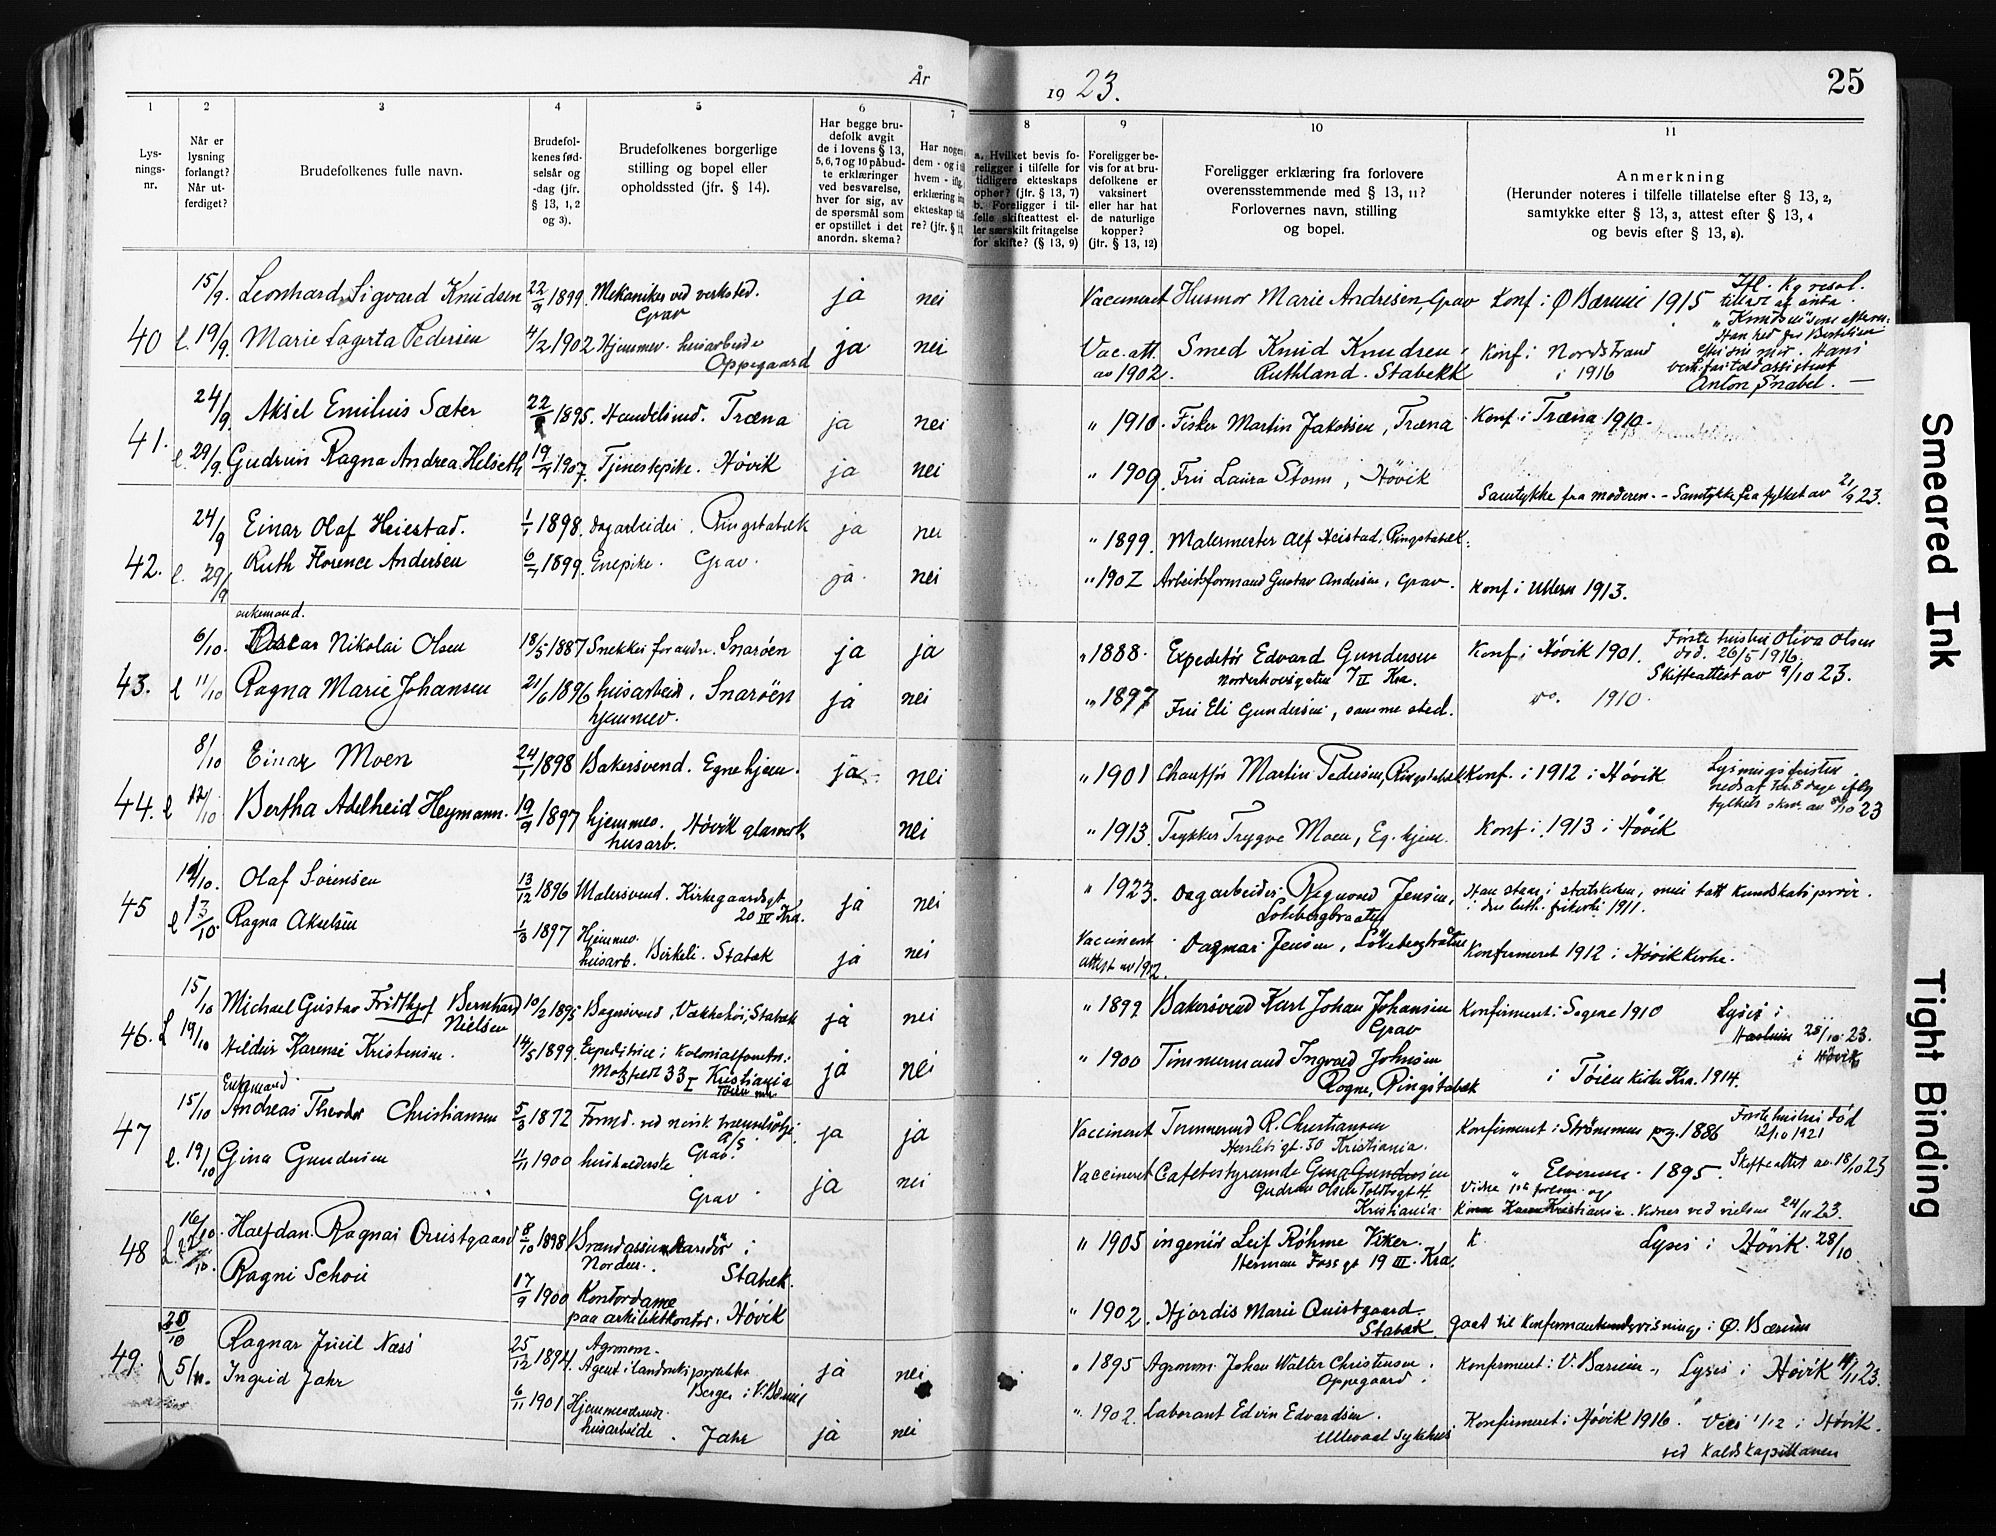 År 1923. 25
1 2 3 4 5 6 7 8 9 10 11
Lysnings-nr.
Når er lysning forlangt? Når utferdiget?
Brudefolkenes fulle navn.
Brudefolkenes fødselsår og -dag (jfr. § 13, 1, 2 og 3).
Brudefolkenes borgerlige stilling og bopel eller opholdssted (jfr. § 14).
Har begge brudefolk avgit de i lovens § 13, 5, 6, 7 og 10 påbudte erklæringer ved besvarelse, hver for sig, av de spørsmål som er opstillet i det anordn. skema?
a. Hvilket bevis foreligger i tilfelle for tidligere ekteskaps ophør? (jfr. § 13, 7)
b. Foreligger i tilfelle skifteattest eller særskilt fritagelse for skifte? (§ 13, 9)
Foreligger bevis for at brudefolkene er vaksinert eller har hat de naturlige kopper? (jfr. § 13, 12)
Foreligger erklæring fra forlovere overensstemmende med § 13, 11? Forlovernes navn, stilling og bopel.
Anmerkning
(Herunder noteres i tilfelle tillatelse efter § 13, 2, samtykke efter § 13, 3, attest efter § 13, 4 og bevis efter § 13, 8).
15/9. Leonhard Sigvard Knudsen 22/9 1899. Mekaniker ved verksted. Grav ja nei Vaccineret Husmor Marie Andresen, Grav Konf. i Ø Bærum 1915
40 l. 19/9. Marie Lagerta Pedersen 4/2 1902 Hjemmev. husarbeide Oppegaard ja nei Vac. att. av 1902. Smed Knud Knudsen, Ruthland. Stabekk Konf. i Nordstrand i 1916
Anton Snabel.
24/9. Aksel Emilius Sæter 1895. Handelsmd. Træna ja nei " 1910. Fisker Martin Jakobsen, Træna Konf. i Træna 1910.
41. l. 29/9. Gudrun Ragna Andrea Helseth 1907. Tjenestepike. Høvik ja nei " 1909. Fru Laura Storm, Høvik Samtykke fra moderen. - Samtykke fra fylket av 21/9 23.
24/9 Einar Olaf Heiestad. 1/1 1898. Dagarbeider. Ringstabæk ja nei " 1899. Malermester Alf Heistad, Ringstabæk.
42. l. 29/9 Ruth Florence Andersen 1899. Enepike. Grav. ja. nei " 1902 Arbeidsformand Gustav Andersen, Grav. Konf. i Ullern 1913.
enkemand.
6/10. Oscar Nikolai Olsen 18/5 1887 Snekker for andre. Snarøen ja ja " 1888. Expeditør Edvard Gundersen Norderhovsgaten 7 II Kra. Konf. i Høvik 1901. Første hustru Oliva Olsen død. 26/5 1916. Skifteattest av 9/10 23.
43. l 11/10 Ragna Marie Johansen 21/6 1896 husarbeid. Snarøen hjemmev. ja nei " 1897 Fru Eli Gundersen, samme sted. do. 1910.
8/10 Einar Moen 24/1 1898 Bakersvend. Egne hjem. ja nei " 1901 Chauffør Martin Pedersen, Ringstabæk Konf. i 1912 i Høvik
44. l 12/10 Bertha Adelheid Heymann. 19/9 1897 hjemmev. Høvik glasverk. husarb. nei " 1913. Trykker Trygve Moen, Eg. hjem. Konf. i 1913 i Høvik
Olaf Sørensen 13/12 1896 Malersvend. Kirkegaardsgt. 20 IV Kra. ja nei " 1923. Dagarbeider Ragnvald Jensen, Løkebergbraaten
45 l 13/10. Ragna Akselsen 1/3 1897 Hjemmev. husarb. Birkeli. Stabæk ja nei Vaccinert attest av 1912. Dagmar Jensen, Løkebergbråten Konfirmeret 1912 i Høvik kirke.
15/10 Michael Gustav Fridthjof Bernhard Nielsen 10/2 1895 Bagersvend, Stabæk ja nei " 1899 Bakersvend Karl Johan Johansen Grav Konfirmeret i Sagene 1910 Lyses i Haslum 28/10 23. i Høvik
46. L 19/10 Hildur Karense Kristensen. 14/5 1899. Expeditrice i Kolonialforretn. Motzfeldt 33 I Kristiania ja nei " 1900 Tømmermand Ingvald Johnsen Rogne, Ringstabæk i Tøien kirke Kra. 1914.
Enkemand.
15/10 Andreas Theodor Christiansen 5/3 1872 Formd. ved norsk A/S Grav. ja ja Vaccineret Tømmermd R. Christiansen Herslebsgt. 30 Kristiania. Konfirmeret i Strømmen pg. 1886 Første hustru død 12/10 1921
47 l. 19/10 Gina Gundersen 11/11 1900 husholderske Grav. ja nei Vaccineret Cafebestyrerinde Gina Gundersen Gudrun Olsen Toldbugt Kristiania. " Elverum. 1895. Skifteattest av 18/10 23
16/10. Halfdan Ragnar Quistgaard 8/10 1898 Brandassurandør i Norden. Stabæk. " 1905 ingeniør Leif Röhme Viker. Herman Fossgt 19 III. Kra. K. Lyses i Høvik. 28/10
48 L. Ragni Schou 17/9 1900 Kontordame paa arkitektkontor. Høvik " 1902. Hjørdis Marie Quistgaard. Stabæk gaat til Konfirmantundervisning i Ø. Bærum
20/10 Ragnar Juul Næss 25/12 1894. Agronom. Agent i Berger i V. Bærum ja nei " 1895 Agronom Johan Walter Christensen. Oppegaard. Konfirmeret i V. Bærum. Lyses i Høvik 23.
49. 5/11. Ingrid Jahr 6/11 1901 Hjemmeværende husarbeide. Jahr ja nei " 1902 Laborant Edvin Edvardsen. Ullevaal sykehus Konfirmeret i Høvik 1916. Vies 1/12 i Høvik.
ved Kaldskapellanen
Smeared Ink
Tight Binding